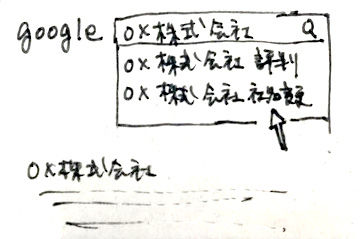 google
○×株式会社 Q
○×株式会社 評判
○×株式会社
○×株式会社